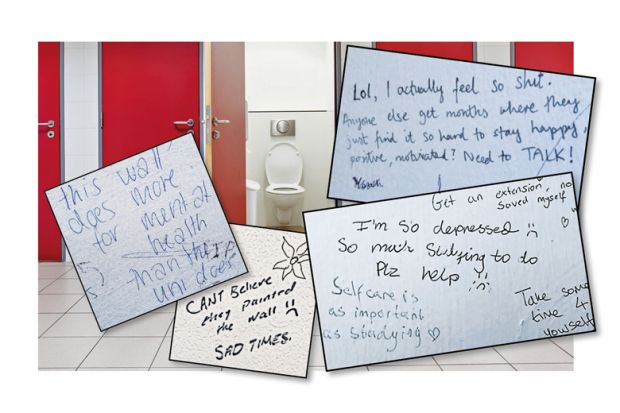 this wall
does more
for mental
health
than the
uni does
CANT Believe
they painted
the wall
SAD TIMES.
Lol, I actually feel so shit.
Anyone else get months where they
just find it so hard to stay happy,
positive, motivated? Need to TALK!
Get an extension,
saved myself
I'm so depressed :(
So much Studying to do
Plz help
Selfcare is
as important
as studying ♡
Take some
time 4
yourself